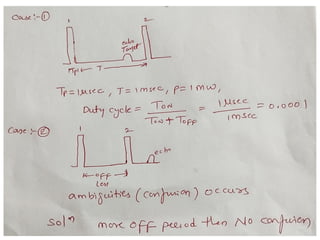 Case:-①
1 2
echo
Target
Tp T
Tp=1μsec, T=1msec, P=1MW,
Duty cycle = TON / TON+TOFF = 1μsec / 1msec = 0.0001
Case:-②
1 2
echo
OFF
Less
ambiguities (confusion) occurs
solⁿ more OFF period then No confusion